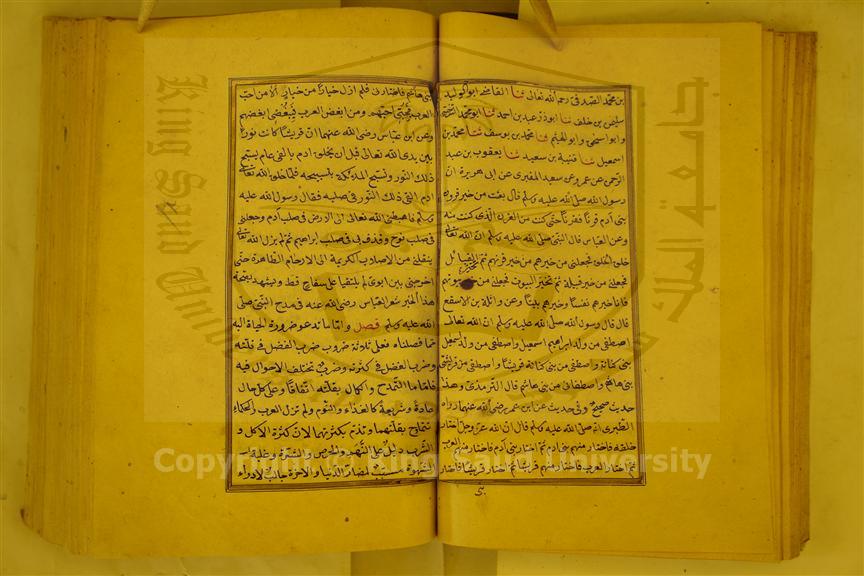 بن محمد الصدفى رحمه الله تعالى ثنا القاضى ابو الوليد
سليمن بن خلف ثنا ابو ذر عبد بن احمد ثنا ابو محمد السرخسى
وابو اسحق وابو الهيثم ثنا محمد بن يوسف ثنا محمد بن
اسمعيل ثنا قتيبة بن سعيد ثنا يعقوب بن عبد
الرحمن عن عمرو عن سعيد المقبرى عن ابى هريرة ان
رسول الله صلى الله عليه وسلم قال بعثت من خير قرون
بنى آدم قرنا فقرنا حتى كنت من القرن الذى كنت منه
وعن العباس قال النبى صلى الله عليه وسلم ان الله تعالى
خلق الخلق فجعلنى من خيرهم من خير قرنهم ثم تخير القبائل
فجعلنى من خير قبيلة ثم تخير البيوت فجعلنى من خير بيوتهم
فانا خيرهم نفسا وخيرهم بيتا وعن واثلة بن الاسقع
قال قال رسول الله صلى الله عليه وسلم ان الله تعالى
اصطفى من ولد ابراهيم اسمعيل واصطفى من ولد اسمعيل
بنى كنانة واصطفى من بنى كنانة قريشا واصطفى من قريش
بنى هاشم واصطفانى من بنى هاشم قال الترمذى وهذا
حديث صحيح وفى حديث عن ابن عمر رضى الله عنهما رواه
الطبرى انه صلى الله عليه وسلم قال ان الله عز وجل اختار
خلقه فاختار منهم بنى آدم ثم اختار بنى آدم فاختار منهم العرب
ثم اختار العرب فاختار منهم قريشا ثم اختار قريشا فاختار
بنى هاشم فاختارنى فلم ازل خيارا من خيار الا من احب
العرب فبحبى احبهم ومن ابغض العرب فببغضى ابغضهم
وعن ابن عباس رضى الله عنهما ان قريشا كانت نورا
بين يدى الله تعالى قبل ان يخلق ادم بالفى عام يسبح
ذلك النور وتسبح الملائكة بتسبيحه فلما خلق الله تعالى
ادم القى ذلك النور فى صلبه فقال رسول الله عليه
وسلم فاهبطنى الله تعالى الى الارض فى صلب آدم وجعلنى
فى صلب نوح وقذف بى فى صلب ابراهيم ثم لم يزل الله تعالى
ينقلنى من الاصلاب الكريمة الى الارحام الطاهرة حتى
اخرجنى بين ابوى لم يلتقيا على سفاح قط ويشهد بصحة
هذا الخبر شعر العباس رضى الله عنه فى مدح النبى صلى
الله عليه وسلم فصل واما ما تدعو ضرورة الحياة اليه
مما فصلناه فعلى ثلاثة ضروب ضرب الفضل فى قلته
وضرب الفضل فى كثرته وضرب تختلف الاحوال فيه
فاما ما التمدح والكمال بقلته اتفاقا وعلى كل حال
عادة وشريعة كالغذاء والنوم ولم تزل العرب والحكماء
تتمادح بقلتهما وتذم بكثرتهما لان كثرة الاكل و
الشرب دليل على النهم والحرص والشره وغلبة
الشهوة مسبب لمضار الدنيا والاخرة جالب لادواء
Copyright © King Saud University
King Saud University
جامعة الملك